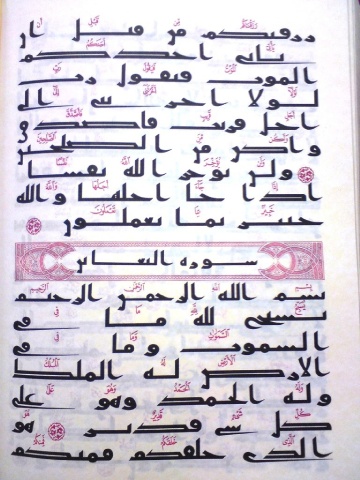 رزقنكم من قبل ان
ياتى احدكم
الموت فيقول رب
لولا اخرتنى الى
اجل قريب فاصدق
واكن من الصلحين
ولن يوخر الله نفسا
اذا جا اجلها والله
خبير بما تعملون
سوره التغابن
بسم الله الرحمن الرحيم
يسبح لله ما فى
السموت وما فى
الارض له الملك
وله الحمد وهو على
كل شى قدير هو
الذى خلقكم فمنكم